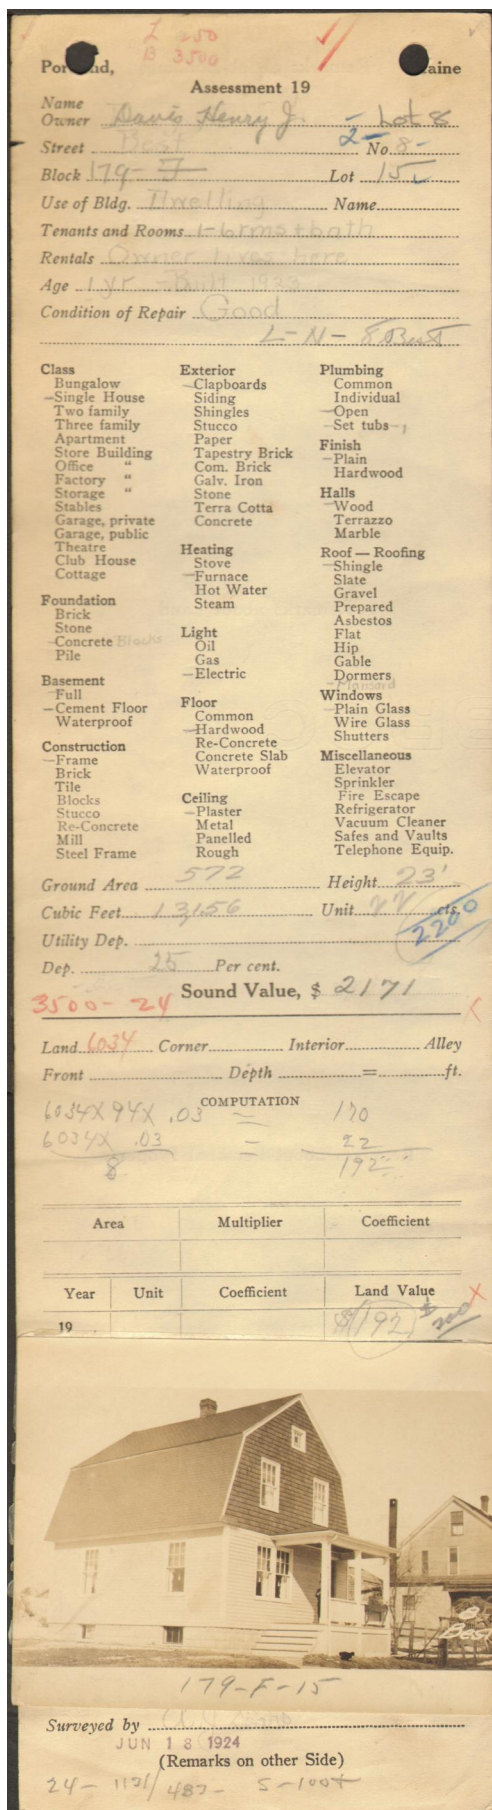 L 250
B 3500
Portland, Maine
Assessment 19
Name
Owner Davis Henry J. - Lot 8
Street Best 2- No. 8-
Block 179-F Lot 15
Use of Bldg. Dwelling Name
Tenants and Rooms 1-6rms+bath
Rentals Owner lives here
Age 1 yr - Built 1923
Condition of Repair Good
L-N- 8 Best
Class
Bungalow
Single House
Two family
Three family
Apartment
Store Building
Office "
Factory "
Storage "
Stables
Garage, private
Garage, public
Theatre
Club House
Cottage
Foundation
Brick
Stone
Concrete Blocks
Pile
Basement
Full
Cement Floor
Waterproof
Construction
Frame
Brick
Tile
Blocks
Stucco
Re-Concrete
Mill
Steel Frame
Exterior
Clapboards
Siding
Shingles
Stucco
Paper
Tapestry Brick
Com. Brick
Galv. Iron
Stone
Terra Cotta
Concrete
Heating
Stove
Furnace
Hot Water
Steam
Light
Oil
Gas
Electric
Floor
Common
Hardwood
Re-Concrete
Concrete Slab
Waterproof
Ceiling
Plaster
Metal
Panelled
Rough
Plumbing
Common
Individual
Open
Set tubs
Finish
Plain
Hardwood
Halls
Wood
Terrazzo
Marble
Roof — Roofing
Shingle
Slate
Gravel
Prepared
Asbestos
Flat
Hip
Gable
Dormers
Mansard
Windows
Plain Glass
Wire Glass
Shutters
Miscellaneous
Elevator
Sprinkler
Fire Escape
Refrigerator
Vacuum Cleaner
Safes and Vaults
Telephone Equip.
Ground Area 572 Height 23'
Cubic Feet 13,156 Unit 22 cts.
2200
Utility Dep.
Dep. 25 Per cent.
Sound Value, $ 2171
3500-24
Land 6034 Corner Interior Alley
Front Depth = ft.
COMPUTATION
6034 X 94 X .03 = 170
6034 X .03 = 22
8 192
Area Multiplier Coefficient
Year Unit Coefficient Land Value
19 $192 $200
8
Best
179-F-15
Surveyed by
JUN 18 1924
(Remarks on other Side)
24- 1131/483- S-100+